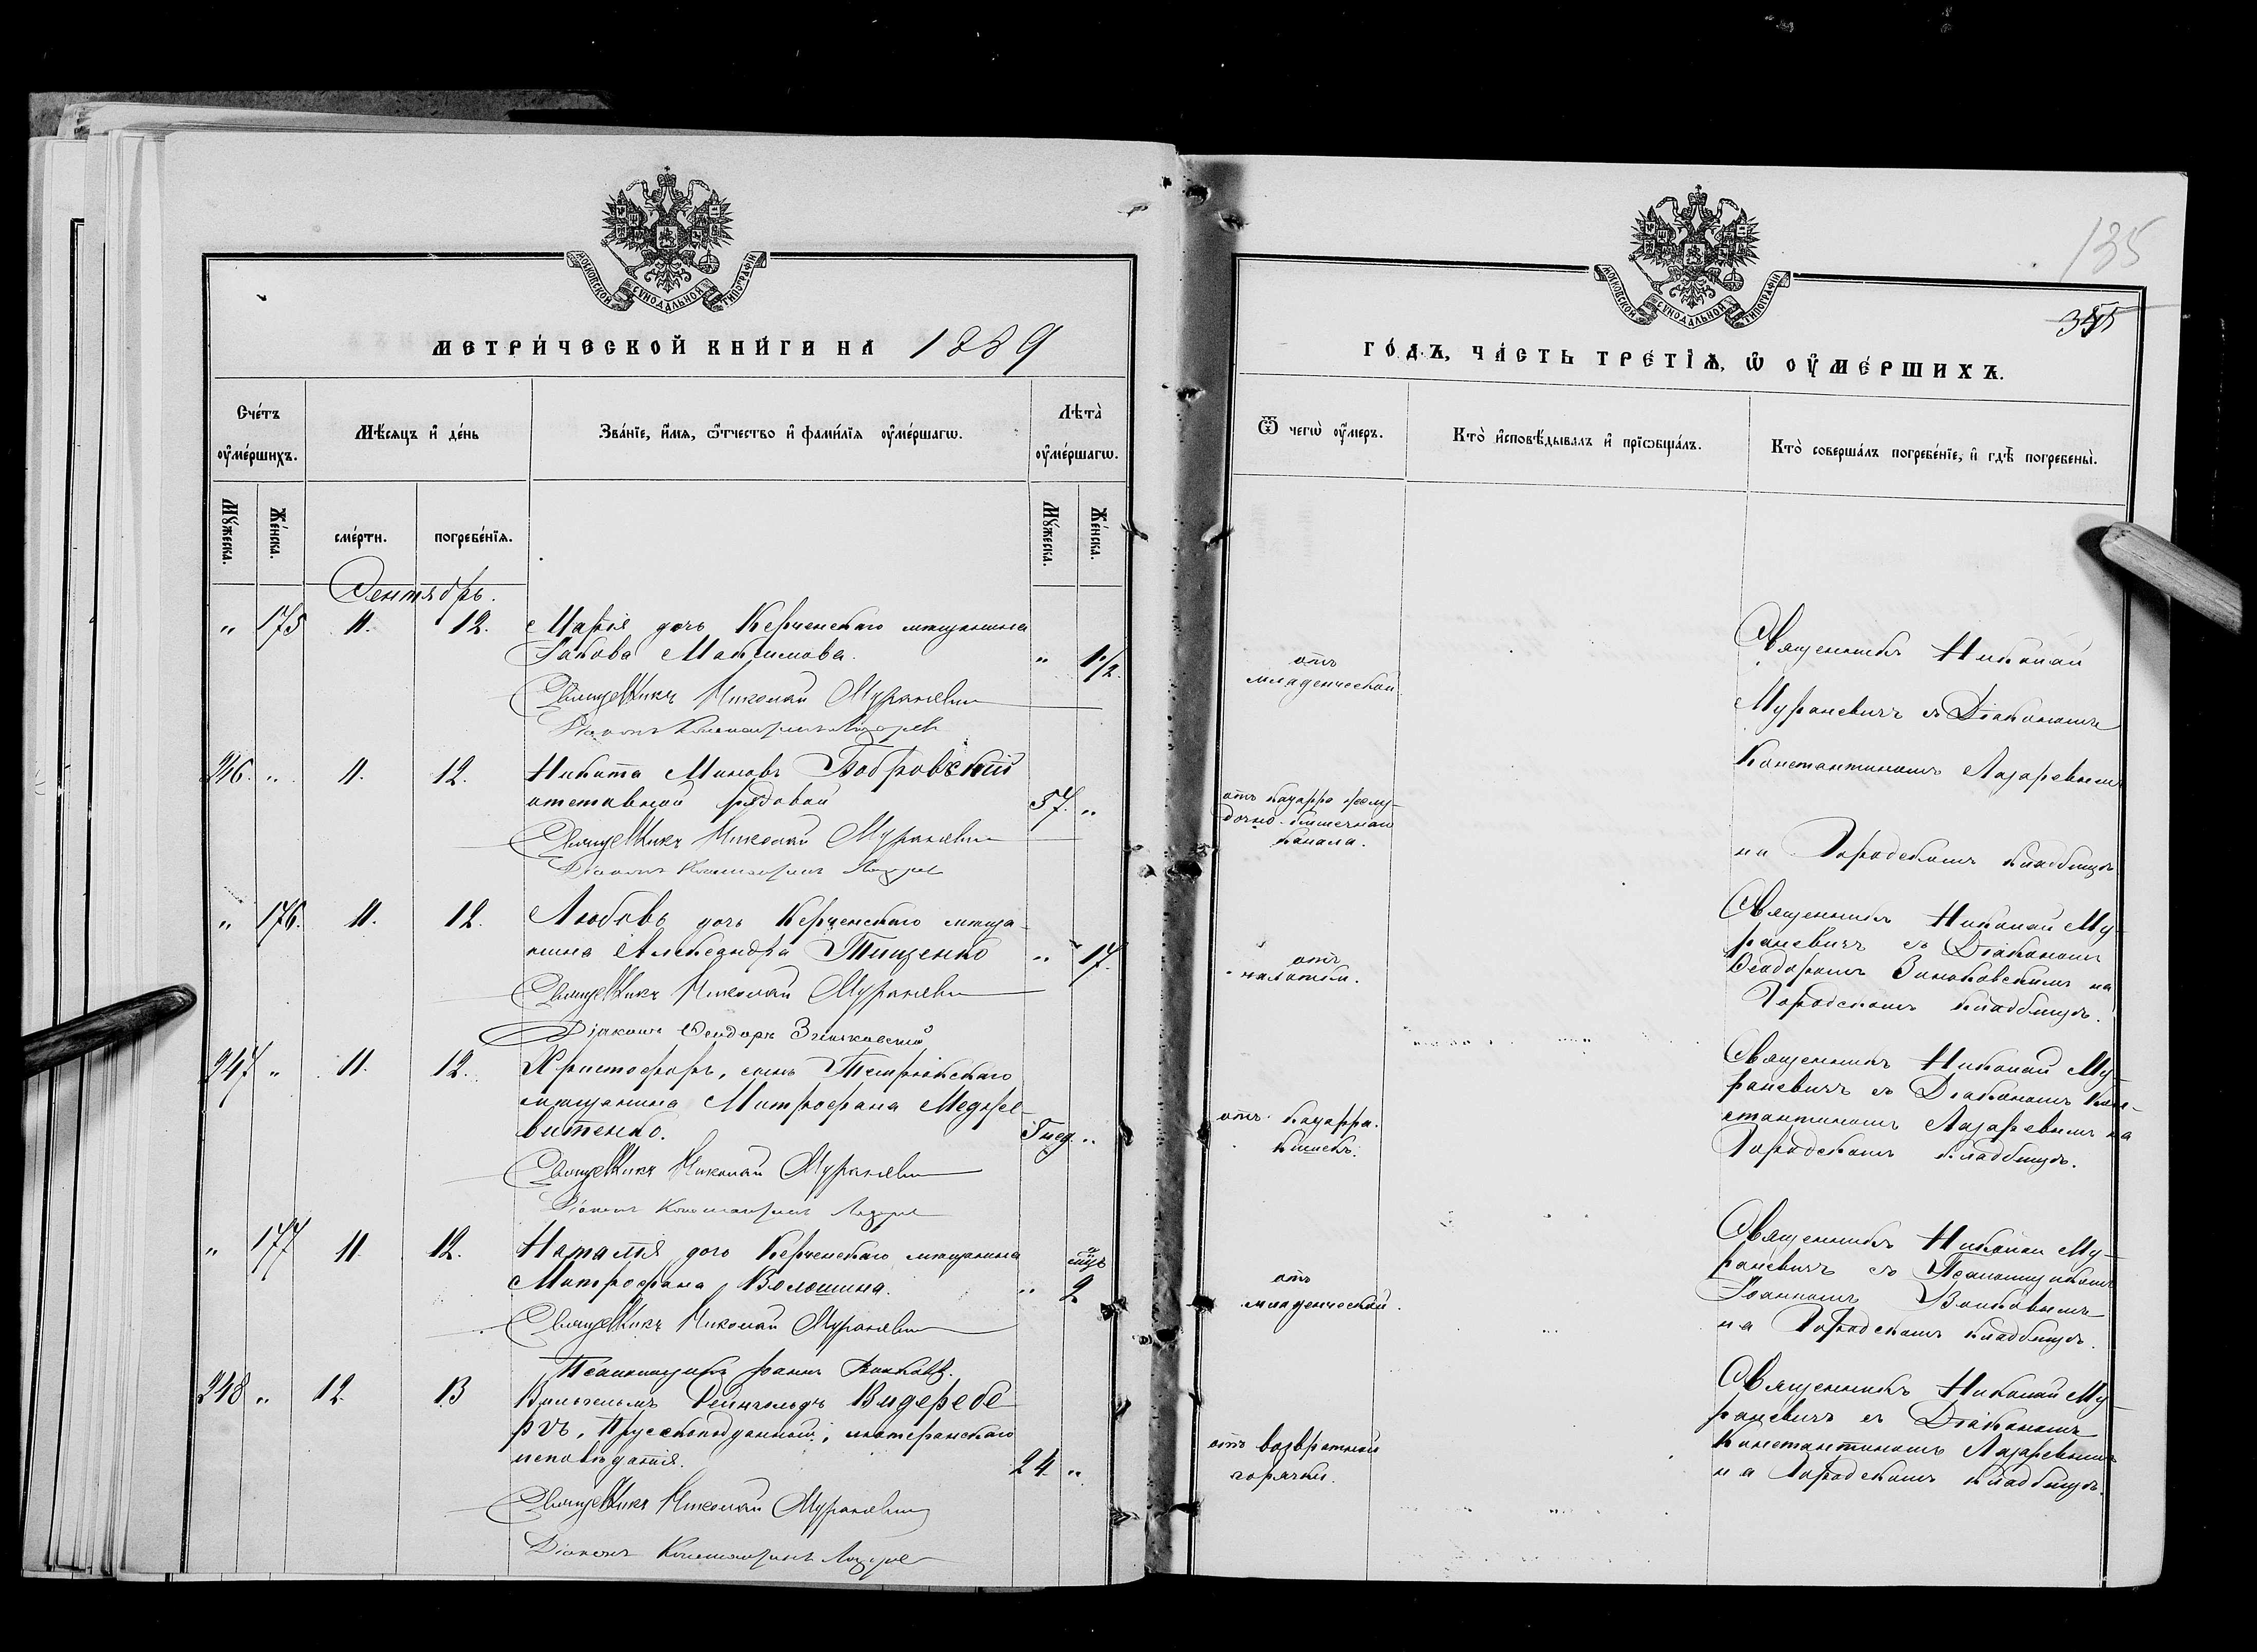 МОСКОВСКОЙ СѴНОДАЛЬНОЙ ТИПОГРАФІИ
МЕТРИ́ЧЕСКОЙ КНИ́ГИ НА 1889
Сче́тъ оу҆ме́ршихъ.
Мѣ́сяцъ и҆ де́нь
Зва́нїе, и҆́мѧ, ѻ҆́тчество и҆ фами́лїѧ оу҆ме́ршагѡ.
Лѣта̀ оу҆ме́ршагѡ.
Мꙋ́жеска.
Же́нска.
сме́рти.
погребе́нїѧ.
Мꙋ́жеска.
Же́нска.
Сентябрь.
" 175 11. 12. Марія дочь Керченскаго мѣщанина
Іакова Максимова. " 1 1/2
Священникъ Николай Мураневичъ
Діаконъ Константинъ Лазаревъ
246. " 11. 12. Никита Миновъ Бобровскій
отставной рядовой 57. "
Священникъ Николай Мураневичъ
Діаконъ Константинъ Лазаревъ
" 176. 11. 12. Любовь дочь Керченскаго мѣща-
нина Александра Тищенко " 17.
Священникъ Николай Мураневичъ
Діаконъ Ѳеодоръ Зеньковскій
247 " 11. 12. Христофоръ, сынъ Темрюкскаго
мѣщанина Митрофана Медже-
витенко. 7 нед. "
Священникъ Николай Мураневичъ
Діаконъ Константинъ Лазаревъ
" 177 11. 12. Наталія дочь Керченскаго мѣщанина
Митрофана Волошина. " мцѣ 2
Священникъ Николай Мураневичъ
Псаломщикъ Іоаннъ Волковъ.
248 " 12. 13 Вильгельмъ Рейнгольдъ Видеребе
ргъ, Прусскоподданный, лютеранскаго
исповѣданія. 24. "
Священникъ Николай Мураневичъ
Діаконъ Константинъ Лазаревъ
135
МОСКОВСКОЙ СѴНОДАЛЬНОЙ ТИПОГРАФІИ
ГО́ДЪ, ЧА́СТЬ ТРЕ́ТЇѦ, Ѡ҆ ОУ҆МЕ́РШИХЪ.
Ѿ чегѡ̀ оу҆́меръ.
Кто̀ и҆сповѣ́дывалъ и҆ прїѡбща́лъ.
Кто̀ соверша́лъ погребе́нїе, и҆ гдѣ̀ погребены̀.
отъ
младенческой
Священникъ Николай
Мураневичъ съ Діакономъ
Константиномъ Лазаревымъ
отъ катарра желу-
дочно-кишечнаго
канала.
на Городскомъ кладбищѣ.
отъ
чахотки.
Священникъ Николай Му-
раневичъ съ Діакономъ
Ѳеодоромъ Зеньковскимъ на
Городскомъ кладбищѣ.
отъ катарра
кишекъ.
Священникъ Николай Му-
раневичъ съ Діакономъ Кон-
стантиномъ Лазаревымъ на
Городскомъ кладбищѣ.
отъ
младенческой.
Священникъ Николай Му-
раневичъ съ Псаломщикомъ
Іоанномъ Волковымъ
на Городскомъ кладбищѣ.
отъ возвратной
горячки.
Священникъ Николай Му-
раневичъ съ Діакономъ
Константиномъ Лазаревымъ
на Городскомъ кладбищѣ.